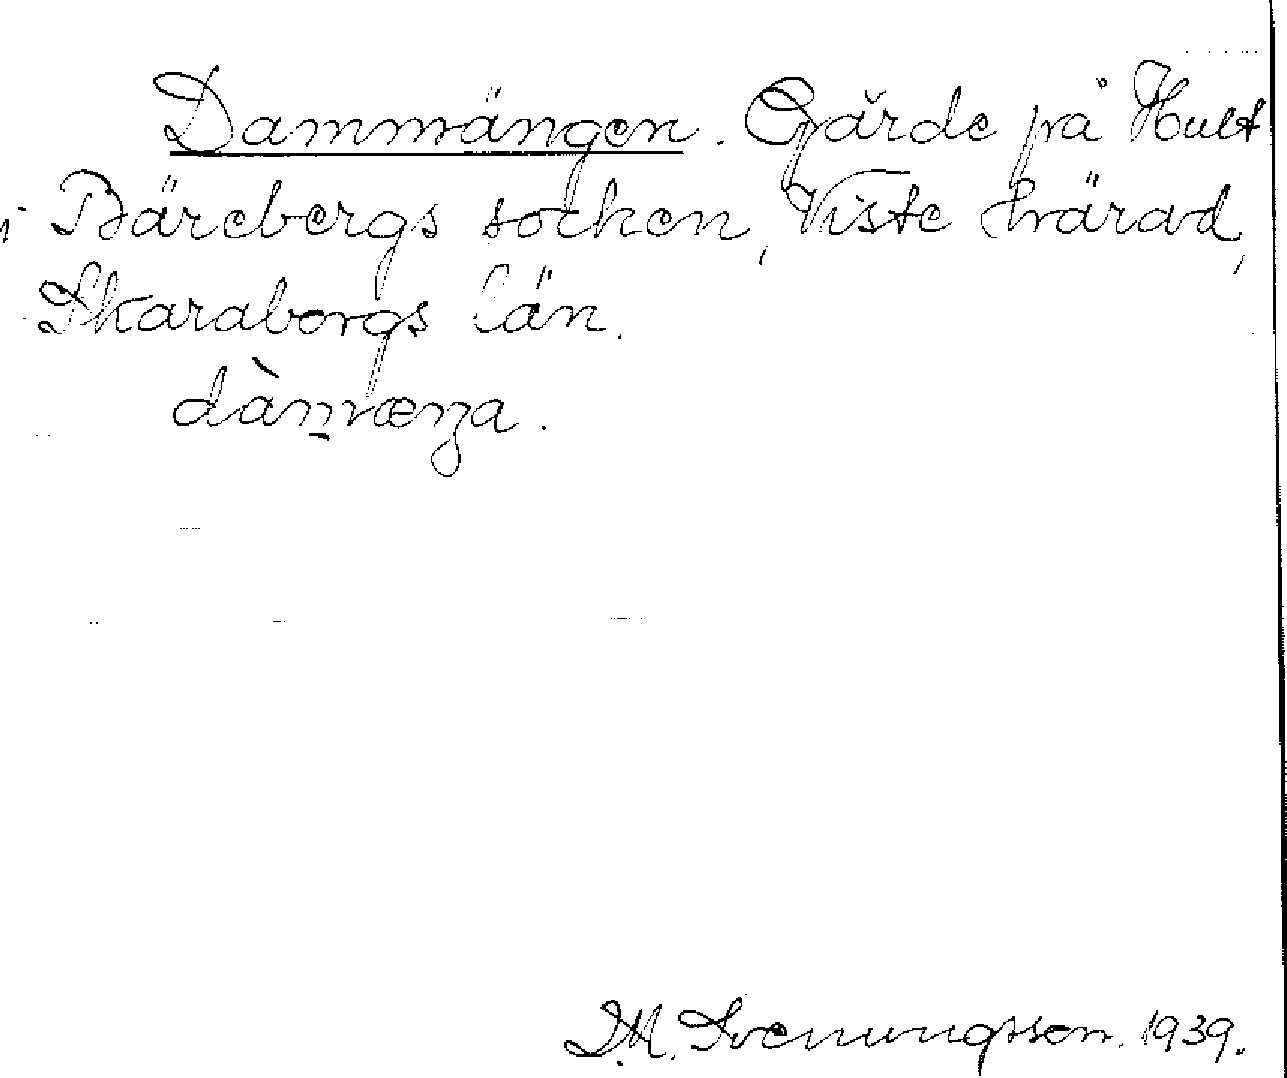 Dammängen. Gärde på Hult
i Bärebergs socken, Viste härad,
Skaraborgs län.
dàm̠æŋa.
S.M. Svenungsson. 1939.